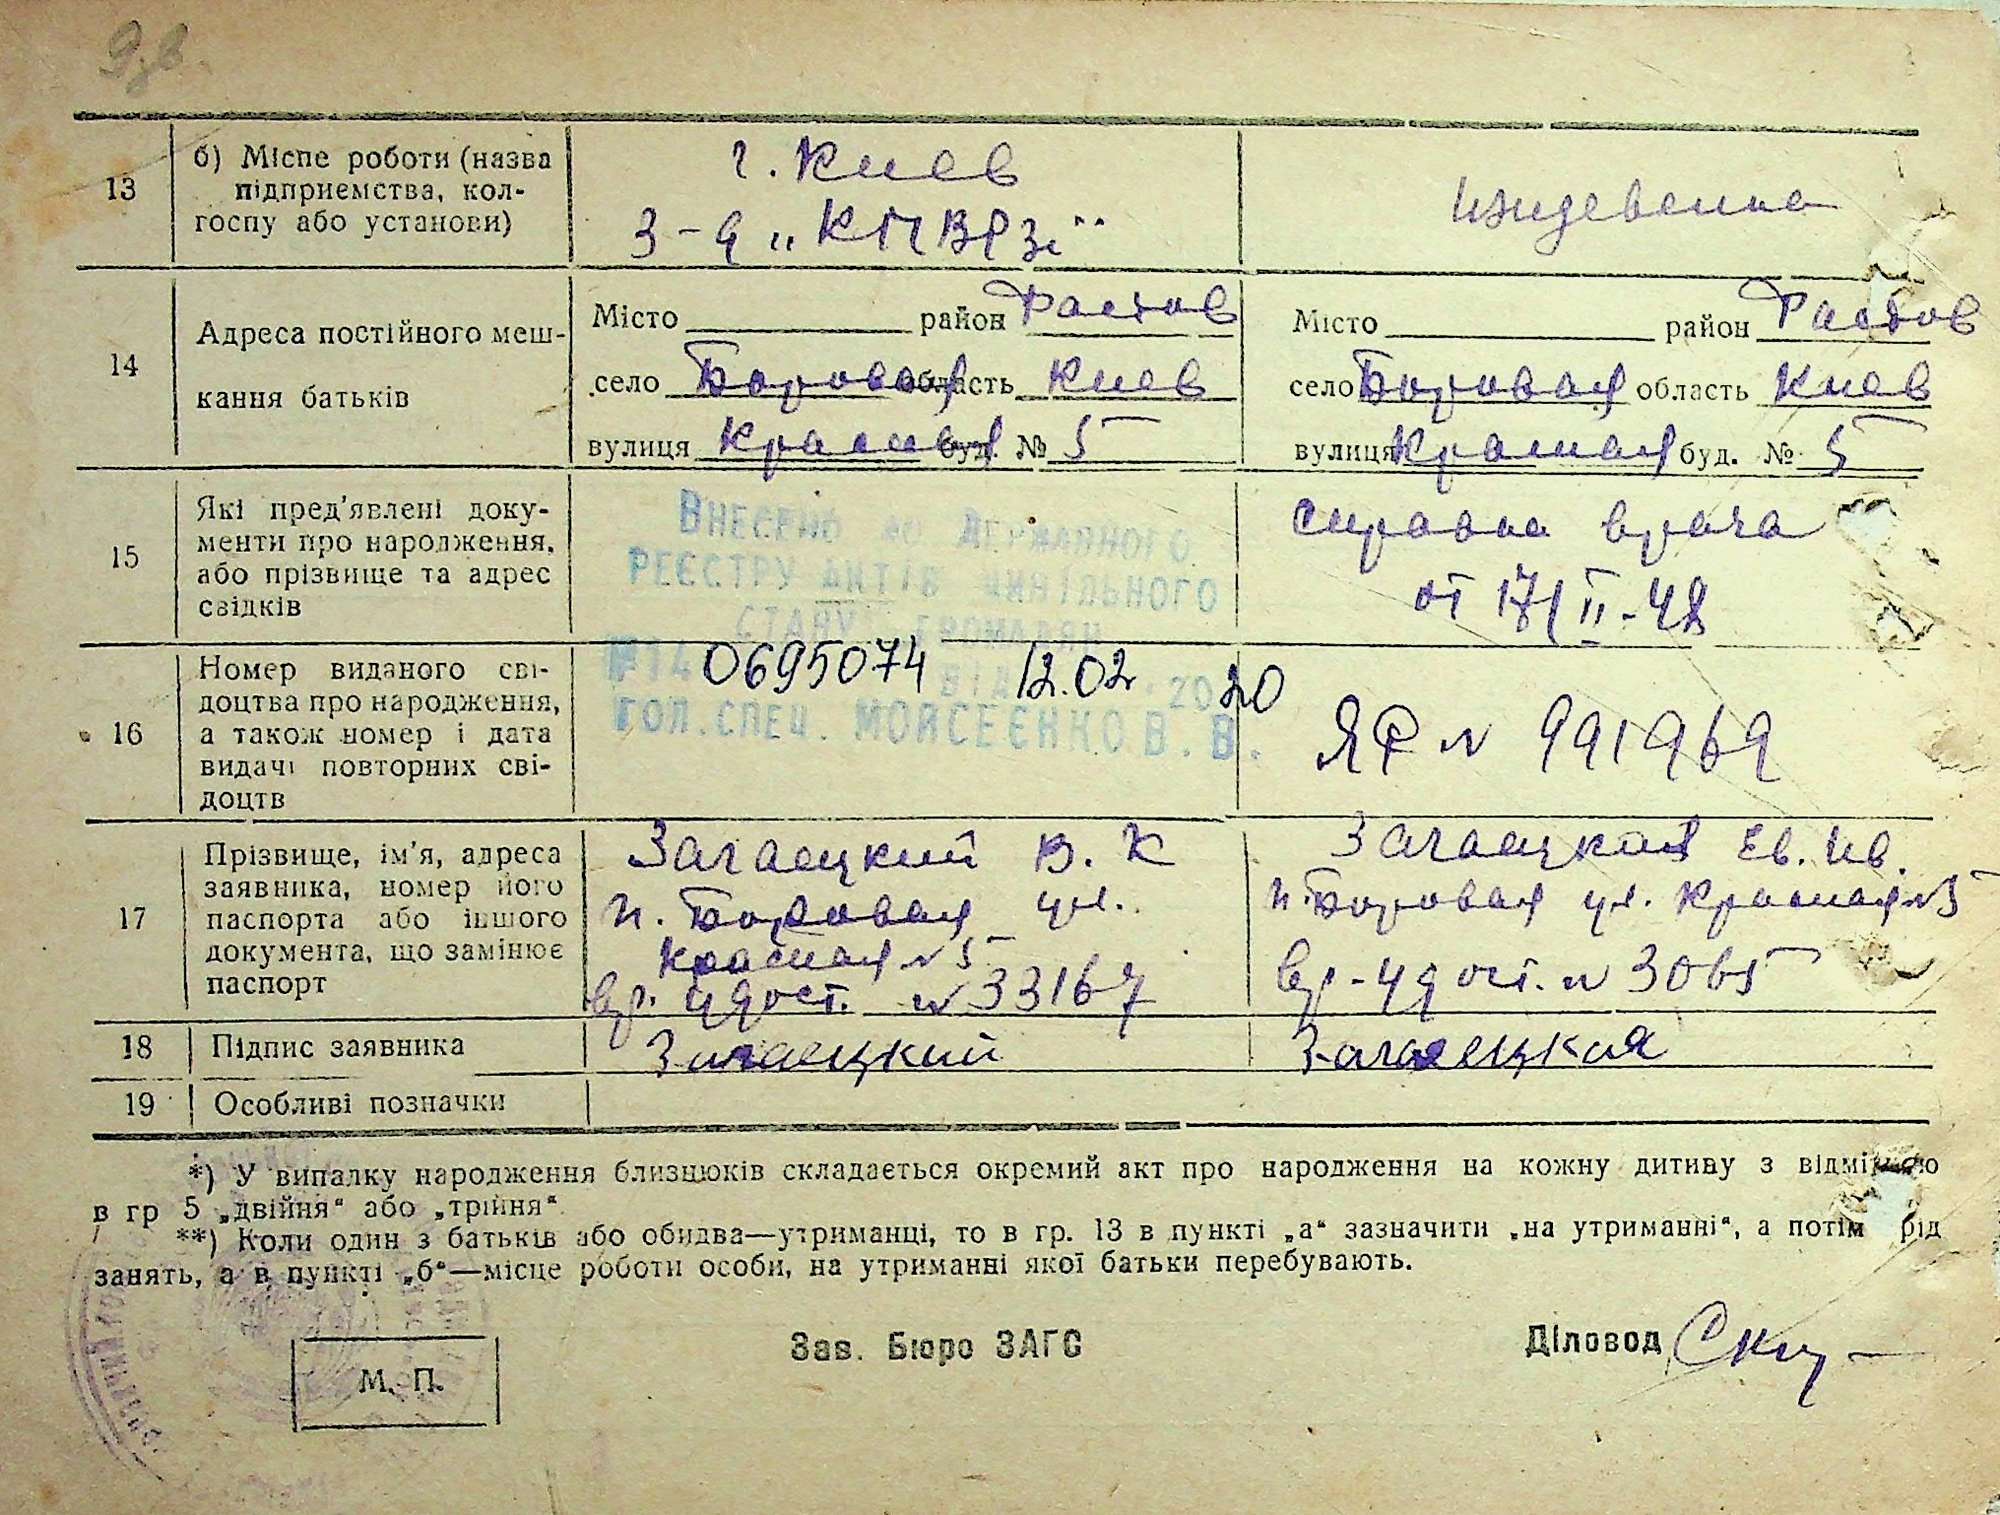 13
б) Місце роботи (назва
підприємства, кол-
госпу або установи)
г. Киев
З-д „КПВРЗ"
иждевенка
14
Адреса постійного меш-
кання батьків
Місто район Фастов
село Боровая область Киев
вулиця Красная буд. № 5
Місто район Фастов
село Боровая область Киев
вулиця Красная буд. № 5
15
Які пред'явлені доку-
менти про народження,
або прізвище та адрес
свідків
Внесено до Державного
реєстру актів цивільного
стану громадян
№14 0695074 від 12.02.2020
Гол. спец. Мойсеєнко В. В.
справка врача
от 17/II-48
16
Номер виданого сві-
доцтва про народження,
а також номер і дата
видачі повторних сві-
доцтв
ЯФ № 991969
17
Прізвище, ім'я, адреса
заявника, номер його
паспорта або іншого
документа, що замінює
паспорт
Загаецкий В. К
п. Боровая ул.
Красная № 5
вр. удост. № 33167
Загаецкая Ев. Ив.
п. Боровая ул. Красная № 5
вр-удост. № 3065
18
Підпис заявника
Загаецкий
Загаецкая
19
Особливі позначки
*) У випадку народження близнюків складається окремий акт про народження на кожну дитину з відміткою
в гр 5 „двійня“ або „трійня“
**) Коли один з батьків або обидва—утриманці, то в гр. 13 в пункті „а“ зазначити „на утриманні“, а потім рід
занять, а в пункті „б“—місце роботи особи, на утриманні якої батьки перебувають.
М. П.
Зав. Бюро ЗАГС
Діловод